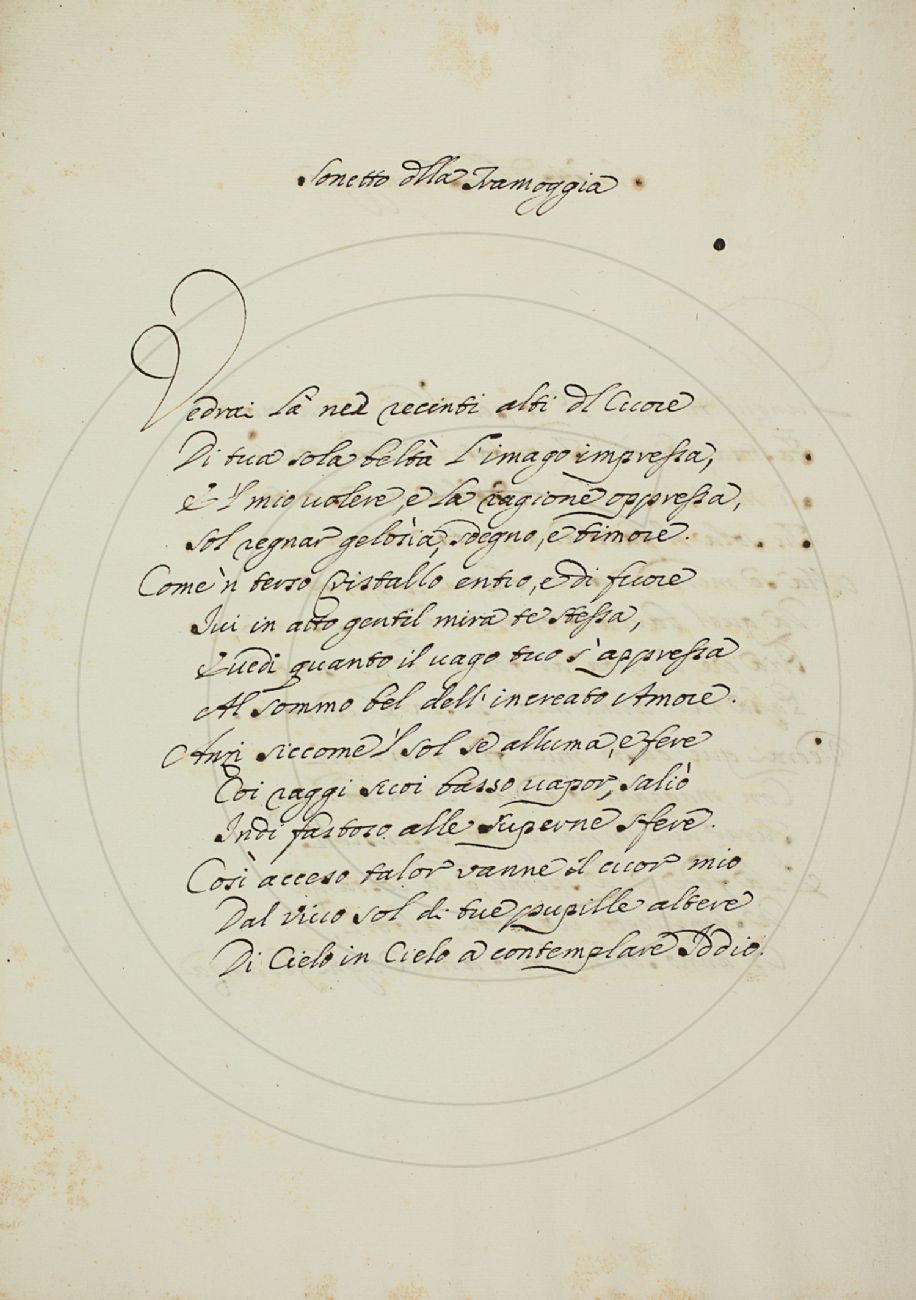 Sonetto dlla Tramoggia
Vedrai là ned recinti alti dl Cuore
Di tua sola beltà l'imago impressa,
E 'l mio volere, e la ragione oppressa,
Sol regnar gelosia, sdegno, e timore.
Come 'n terso Cristallo entro, e di fuore
Ivi in atto gentil mira te stessa,
E vedi quanto il vago tuo s'appressa
Al sommo bel dell'increato Amore.
Anzi siccome 'l sol se alluma, e fere
Coi raggi suoi basso vapor, saliò
Indi fastoso alle superne sfere.
Così acceso talor vanne il cuor mio
Dal vivo sol di tue pupille altere
Di Cielo in Cielo a contemplare Iddio.